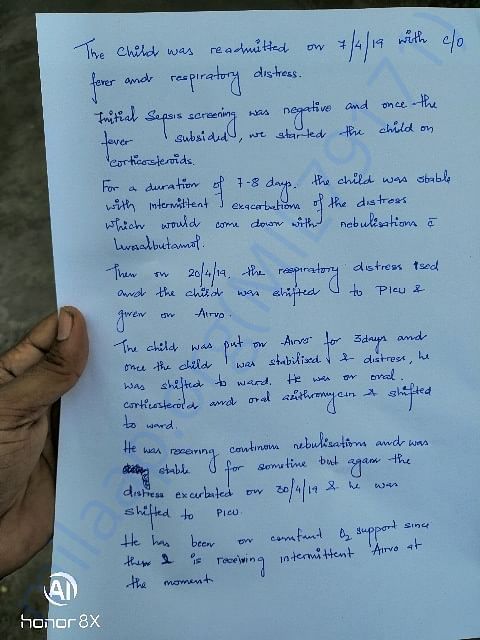 The child was readmitted on 7/4/19 with c/o
fever and respiratory distress.
Initial Sepsis screening was negative and once the
fever subsided, we started the child on
corticosteroids.
For a duration of 7-8 days. the child was stable
with intermittent exacarbations of the distress
which would come down with nebulisations c̄
levosalbutamol.
Then on 20/4/19. the respiratory distress ↑sed
and the child was shifted to PICU &
given on Airvo.
The child was put on Airvo for 3days and
once the child was stabilised & distress, he
was shifted to ward. He was on oral
corticosteroid and oral azithromycin & shifted
to ward.
He was receiving continous nebulisations and was
stable for sometime but again the
distress excerbated on 30/4/19 & he was
shifted to PICU.
He has been on constant O2 support since
then & is receiving intermittent Airvo at
the moment
AI
honor 8X